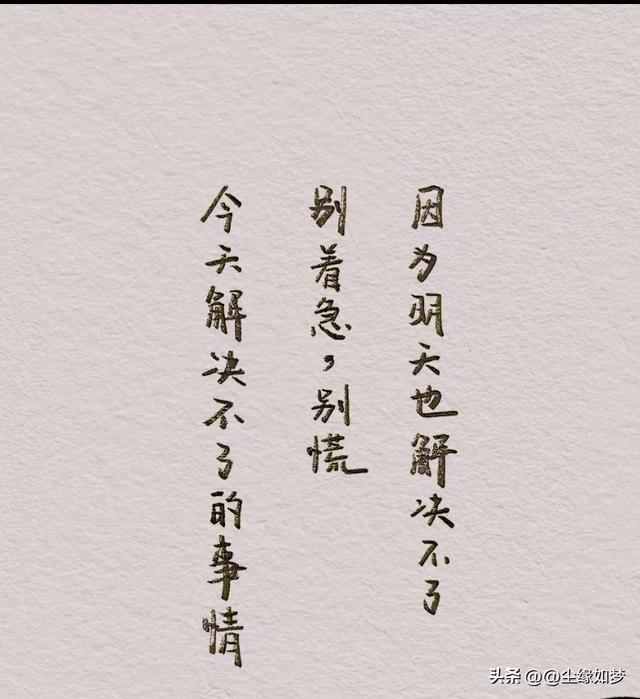 今天解决不了的事情
别着急，别慌
因为明天也解决不了
头条 @@尘缘如梦